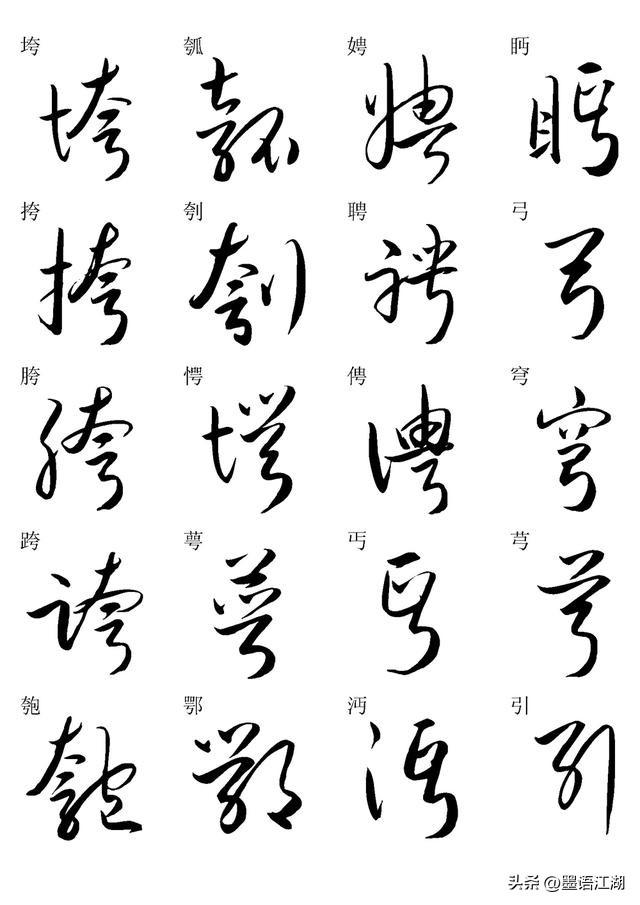 垮 瓠 娉 眄
挎 刳 聘 弓
胯 愕 俜 穹
跨 萼 丏 芎
匏 鄂 沔 引
头条 @墨语江湖